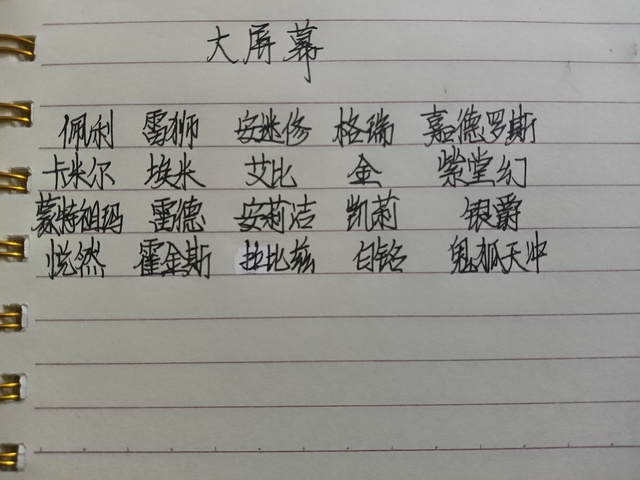 大屏幕
佩利 雷狮 安迷修 格瑞 嘉德罗斯
卡米尔 埃米 艾比 金 紫堂幻
蒙特祖玛 雷德 安莉洁 凯莉 银爵
悦然 霍金斯 拉比兹 白铭 鬼狐天冲